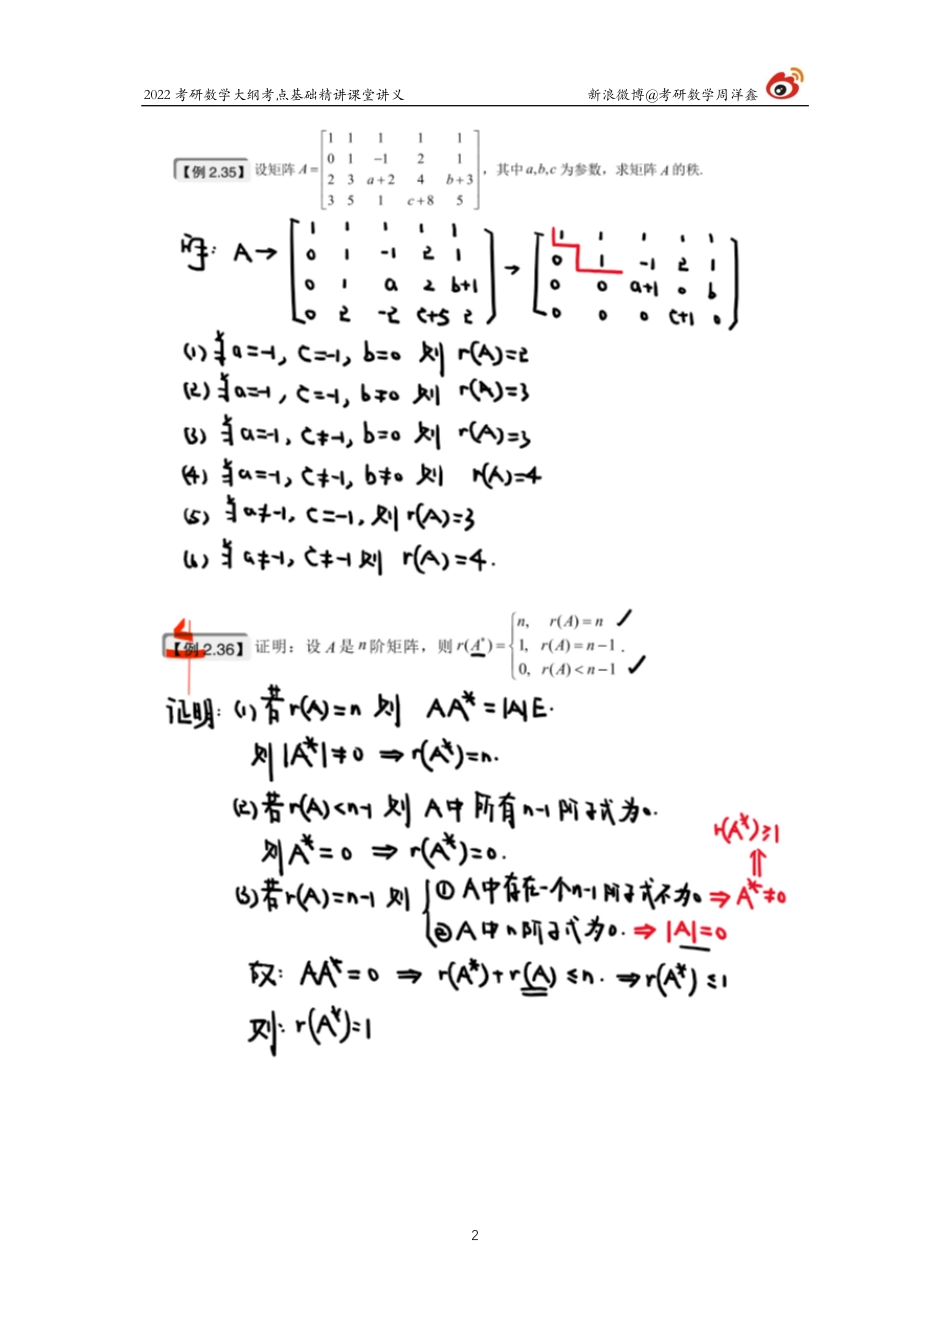 2022 考研数学大纲考点基础精讲课堂讲义 新浪微博@考研数学周洋鑫
【例 2.35】 设矩阵 A= [1 1 1 1 1; 0 1 -1 2 1; 2 3 a+2 4 b+3; 3 5 1 c+8 5] ，其中 a,b,c 为参数，求矩阵 A 的秩.
解: A → [1 1 1 1 1; 0 1 -1 2 1; 0 1 a 2 b+1; 0 2 -2 c+5 2] → [1 1 1 1 1; 0 1 -1 2 1; 0 0 a+1 0 b; 0 0 0 c+1 0]
(1) 当 a=-1, c=-1, b=0 则 r(A)=2
(2) 当 a=-1, c=-1, b≠0 则 r(A)=3
(3) 当 a=-1, c≠-1, b=0 则 r(A)=3
(4) 当 a=-1, c≠-1, b≠0 则 r(A)=4
(5) 当 a≠-1, c=-1, 则 r(A)=3
(6) 当 a≠-1, c≠-1 则 r(A)=4.
【例 2.36】 证明：设 A 是 n 阶矩阵，则 r(A*) = { n, r(A)=n ✓
1, r(A)=n-1 .
0, r(A)<n-1 ✓
证明: (1) 若 r(A)=n 则 AA*=|A|E.
则 |A*|≠0 ⇒ r(A*)=n.
(2) 若 r(A)<n-1 则 A中所有 n-1 阶子式为0.
则 A*=0 ⇒ r(A*)=0.
r(A*)≥1
⇑
(3) 若 r(A)=n-1 则 { ① A中存在一个n-1阶子式不为0 ⇒ A*≠0
② A中n阶子式为0. ⇒ |A|=0
故: AA*=0 ⇒ r(A*)+r(A)≤n. ⇒ r(A*)≤1
则: r(A*)=1
2